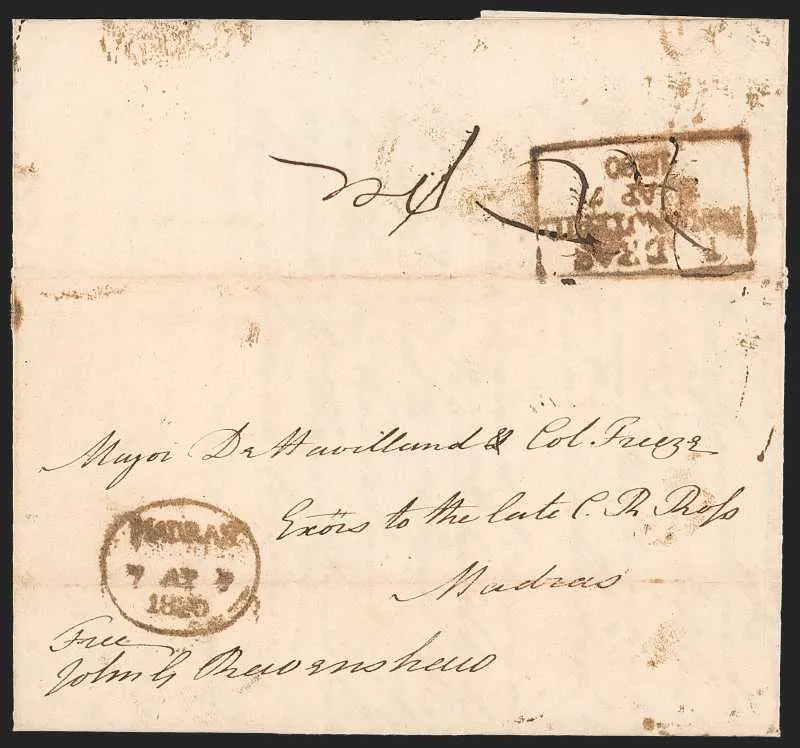 1820
AP 7
MADRAS
Major De Havilland & Col. Freeze
Exörs to the late C. R. Ross
Madras
MADRAS
7 AP 7
1820
Free
John G Ravenshaw